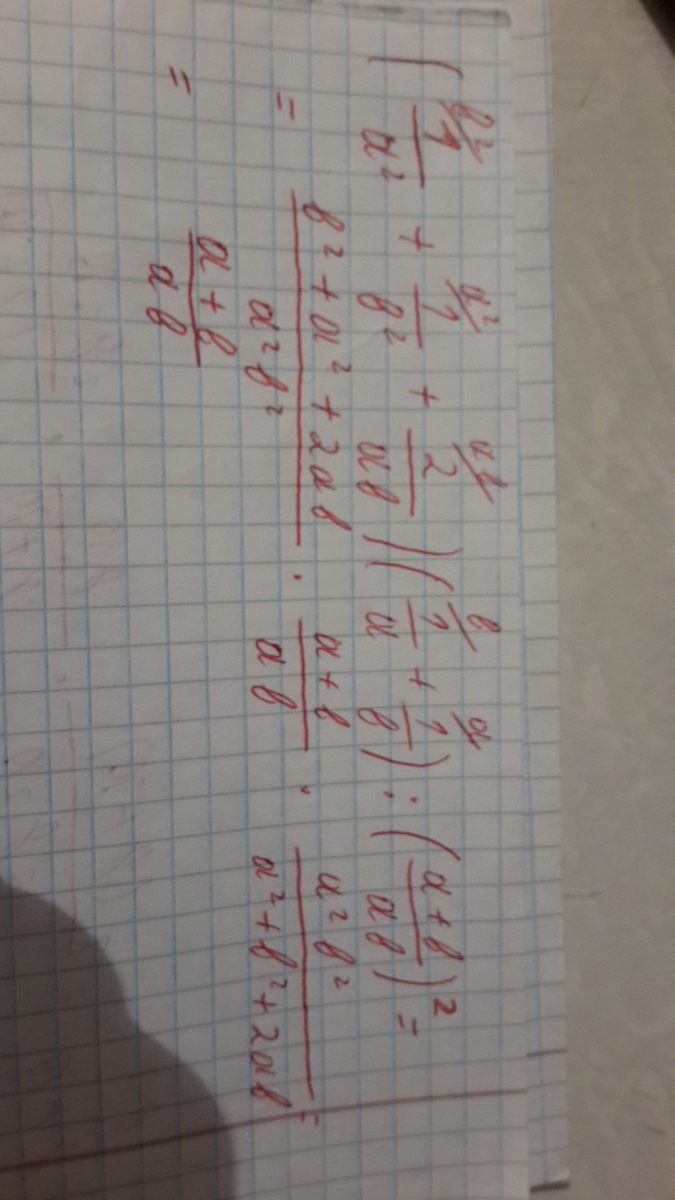 (b²/ 1/a² + a²/ 1/b² + ab/ 2/ab)(b/ 1/a + a/ 1/b) : ((a+b)/ab)² =
= (b² + a² + 2ab)/(a²b²) · (a+b)/(ab) · (a²b²)/(a² + b² + 2ab) =
= (a+b)/(ab)